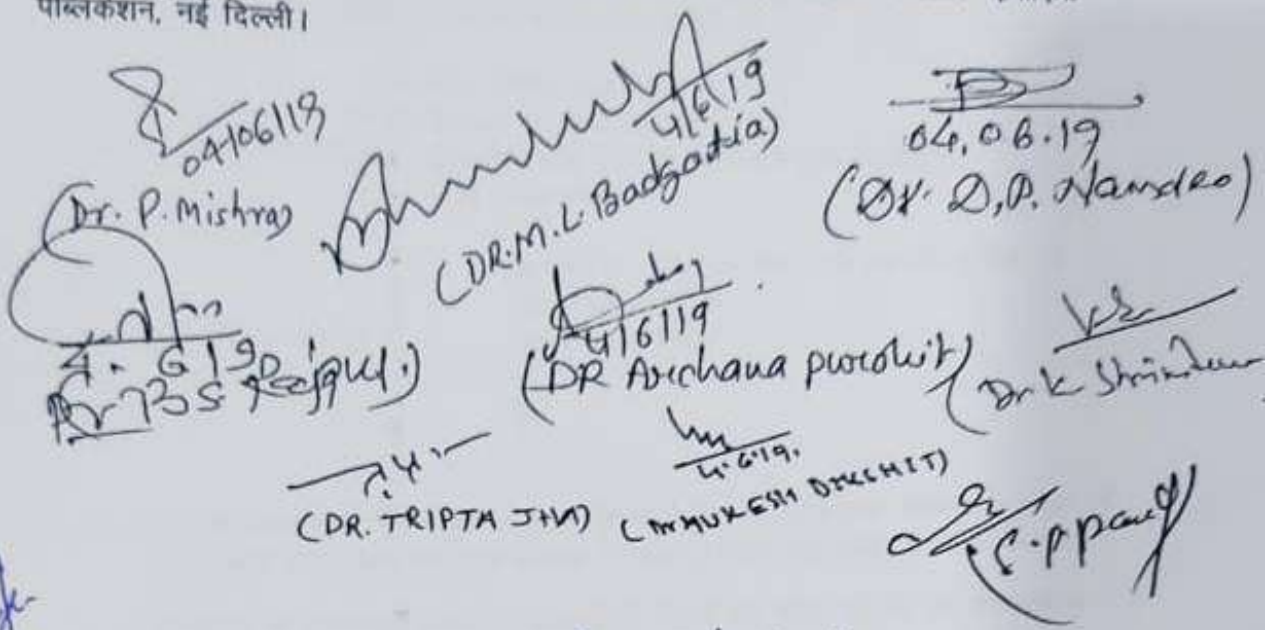 पब्लिकेशन, नई दिल्ली।
04/06/19
(Dr. P. Mishra)
4/6/19
(DR. M. L. Badgaotia)
04.06.19
(Dr. D.P. Namdeo)
4. 6 19
Dr B S Rajput.)
4/6/19
(DR Archana purohit)
Dr K
(DR. TRIPTA JHA)
4.6.19.
(Dr MUKESH DIKSHIT)